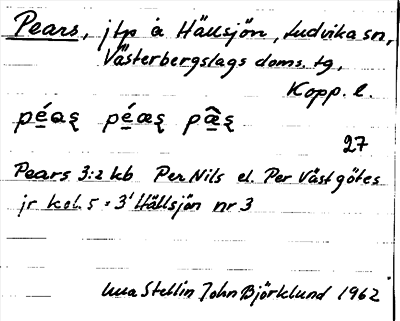 Pears, jtp å Hällsjön, Ludvika sn,
Västerbergslags doms. tg,
Kopp. l.
27
Pears 3:2 kb Per Nils el. Per Västgötes
jr kol. 5 = 3¹ Hällsjön nr 3
Stellin John Björklund 1962